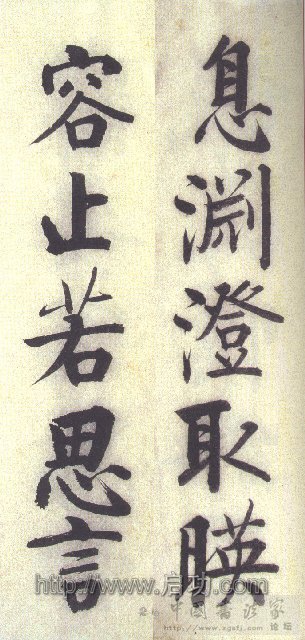 息淵澄取暎
容止若思言
http://www.启功.com
中国书法家
论坛
http://www.zgsfj.com